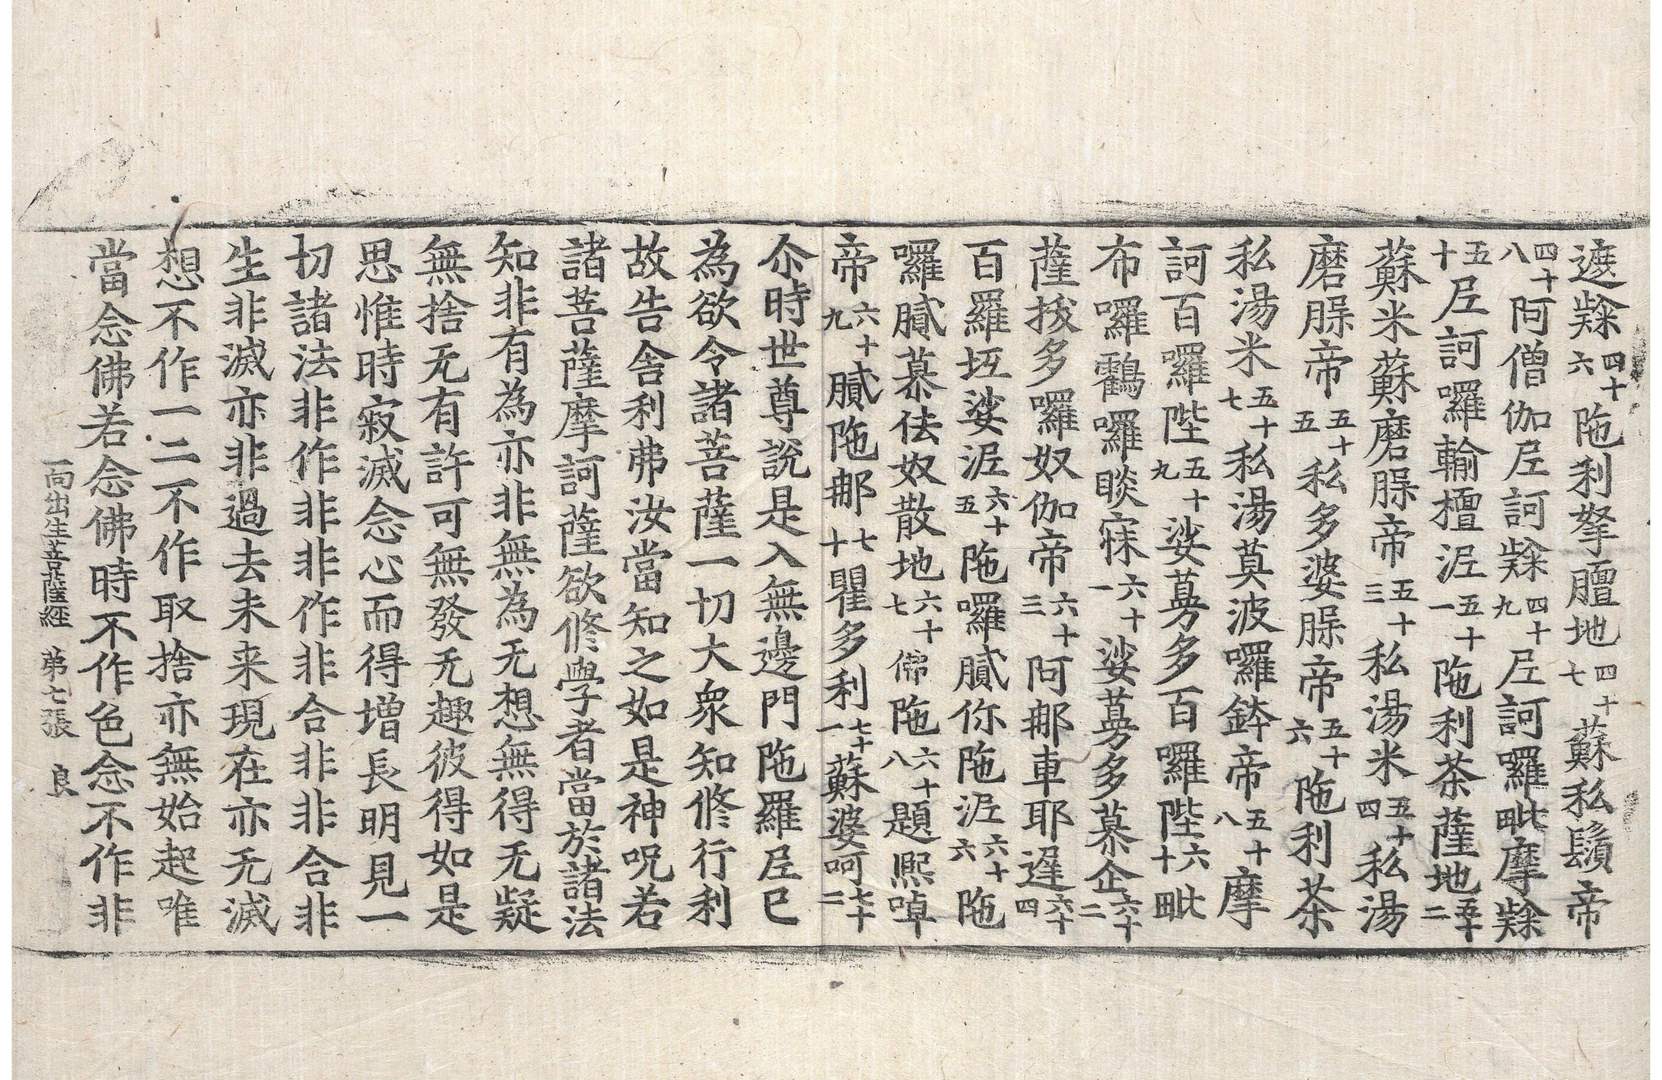 遮𥻦四十六陁利拏膻地四十七蘇私鬚帝
四十八阿僧伽𡰱訶𥻦四十九𡰱訶囉毗摩𥻦
五十𡰱訶囉輸檀泥五十一陁利茶薩地五十二
蘇米蘇磨𦜉帝五十三私湯米五十四私湯
磨𦜉帝五十五私多婆𦜉帝五十六陁利茶
私湯米五十七私湯莫波囉鉢帝五十八摩
訶百囉陛五十九娑蒡多百囉陛六十毗
布囉鸖囉睒寐六十一娑蒡多慕企六十二
薩拔多囉奴伽帝六十三阿那車耶遅六十四
百羅坻娑泥六十五陁囉膩你陁泥六十六陁
囉膩慕佉奴散地六十七佛陁六十八題熙啅
帝六十九膩陁那七十瞿多利七十一蘇婆呵七十二
尒時世尊說是入無邊門陁羅𡰱已
為欲令諸菩薩一切大衆知修行利
故告舍利弗汝當知之如是神呪若
諸菩薩摩訶薩欲修學者當於諸法
知非有為亦非無為无想無得无疑
無捨无有許可無發无趣彼得如是
思惟時寂滅念心而得增長明見一
切諸法非作非非作非合非非合非
生非滅亦非過去未来現在亦无滅
想不作一二不作取捨亦無始起唯
當念佛若念佛時不作色念不作非
一向出生菩薩經　第七張　良